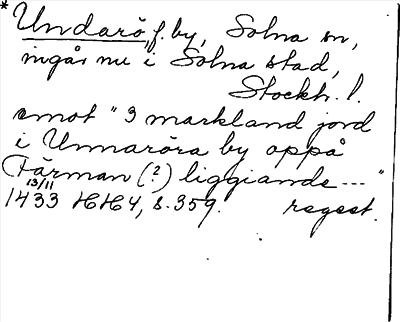 *Undarö, f. by, Solna sn,
ingår nu i Solna stad,
Stockh. l.
emot "3 markland jord
i Unnaröra by oppå
Färman (?) liggiande ---"
13/11
1433 HH4, s. 359. regest.